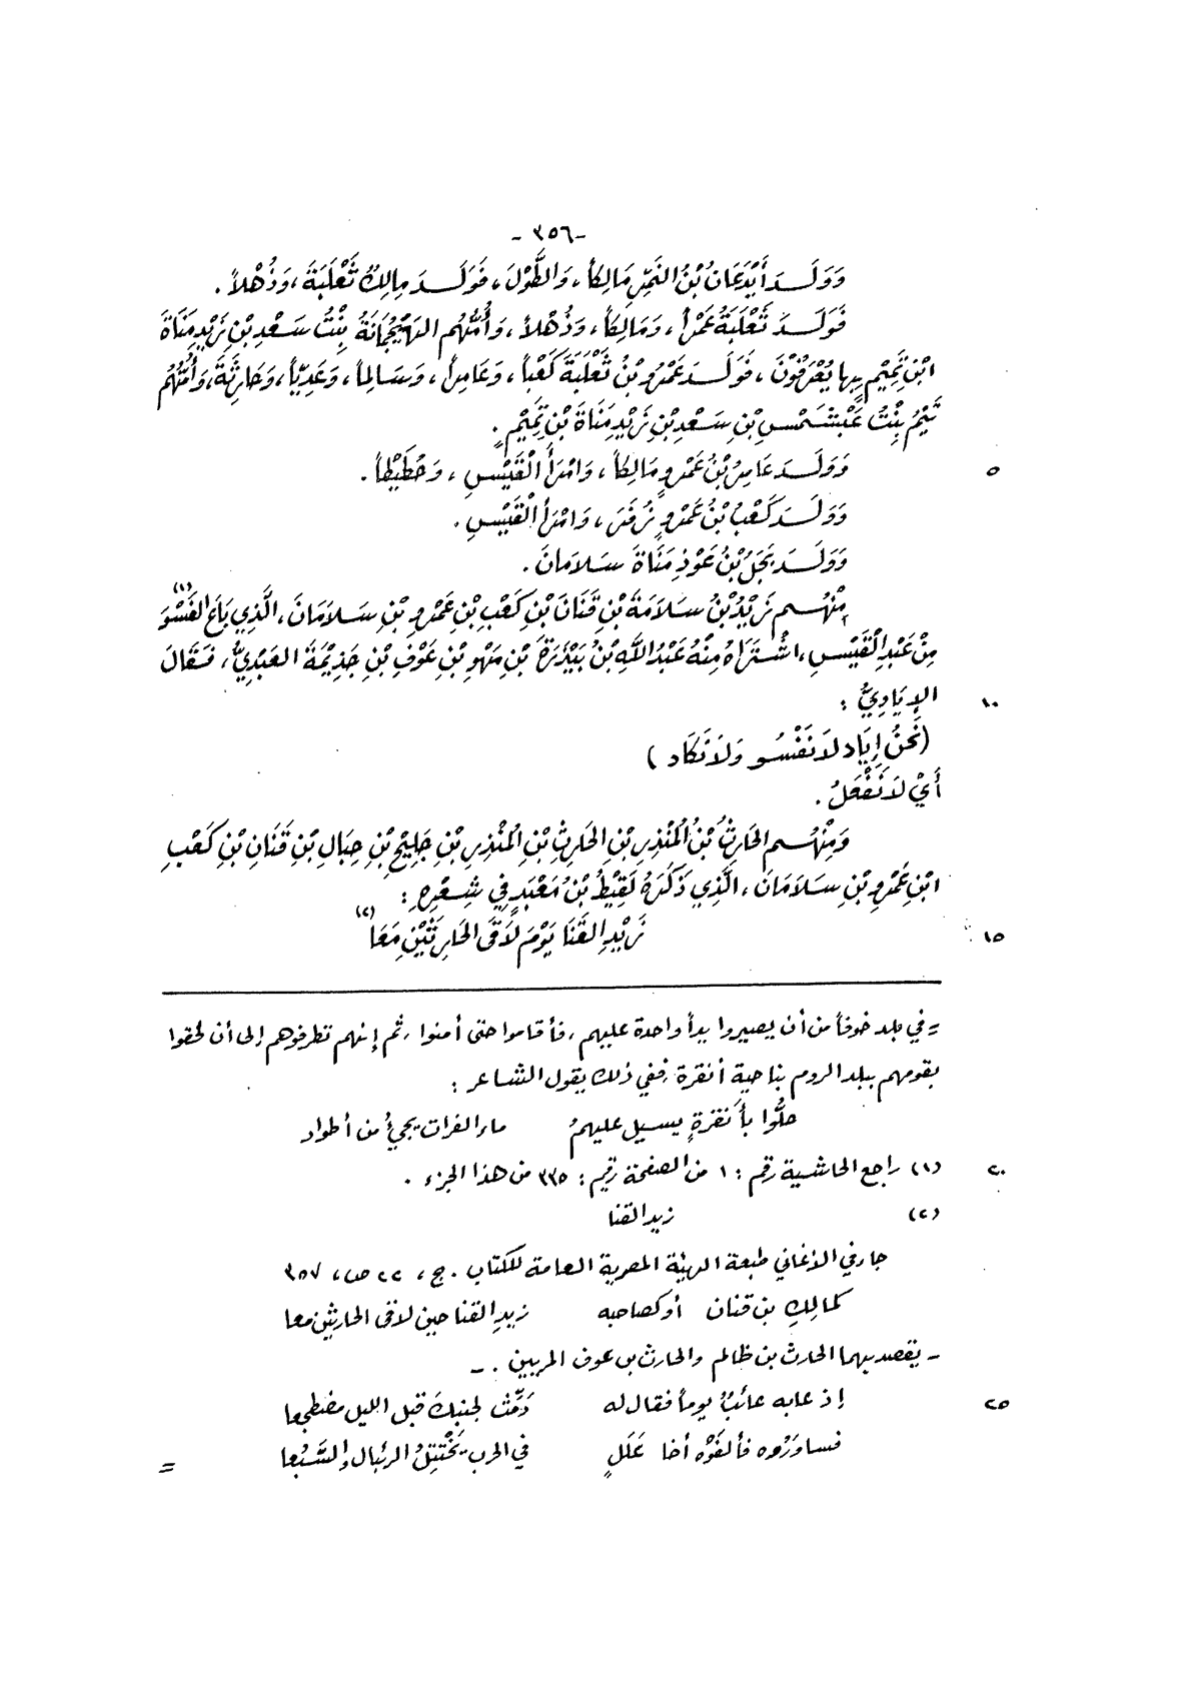 -٣٥٦-
وَوَلَدَ أَيْدَعَانُ بْنُ النَّمِرِ مَالِكاً، وَالطَّوْلَ، فَوَلَدَ مَالِكُ ثَعْلَبَةَ، وَذُهْلاً.
فَوَلَدَ ثَعْلَبَةُ عَمْراً، وَمَالِكاً، وَذُهْلاً، وَأُمُّهُم الهَيْجُمَانَةُ بِنْتُ سَعْدِ بْنِ زَيْدِ مَنَاةَ
ابْنِ تَمِيْمٍ بِها يُعْرَفُوْنَ، فَوَلَدَ عَمْرُو بْنُ ثَعْلَبَةَ كَعْباً، وَعَامِراً، وَسَالِماً، وَعَدِيّاً، وَحَارِثَةَ، وَأُمُّهُم
تَيْمُ بِنْتُ عَبْشَمْسِ بْنِ سَعْدِ بْنِ زَيْدِ مَنَاةَ بْنِ تَمِيْمٍ.
٥ وَوَلَدَ عَامِرُ بْنُ عَمْرٍو مَالِكاً، وَامْرَأَ الْقَيْسِ، وَحُطَيْطاً.
وَوَلَدَ كَعْبُ بْنُ عَمْرٍو زُفَرَ، وَامْرَأَ الْقَيْسِ.
وَوَلَدَ بَجَلُ بْنُ عَوْذِ مَنَاةَ سَلَامَانَ.
مِنْهُم زَيْدُ بْنُ سَلَامَةَ بْنِ قَنَانَ بْنِ كَعْبِ بْنِ عَمْرِو بْنِ سَلَامَانَ، الَّذِي بَاعَ الفَسْوَ (١)
مِنْ عَبْدِ الْقَيْسِ، اشْتَرَاهُ مِنْهُ عَبْدُ اللَّهِ بْنُ بَيْدَرَةَ بْنِ مَهْوِ بْنِ عَوْفِ بْنِ جَذِيْمَةَ العَبْدِيُّ، فَقَالَ
١٠ الإِيَادِيُّ:
(نَحْنُ إِيَاد لَا نَفْسُو وَلَا نَكَاد)
أَيْ لَا نَفْعَلُ.
وَمِنْهُم الحَارِثُ بْنُ الْمُنْذِرِ بْنِ الحَارِثِ بْنِ الْمُنْذِرِ بْنِ جَلِيْحِ بْنِ حِبَالِ بْنِ قَنَانِ بْنِ كَعْبِ
ابْنِ عَمْرِو بْنِ سَلَامَانَ، الَّذِي ذَكَرَهُ لَقِيْطُ بْنُ مَعْبَدٍ فِي شِعْرِهِ:
١٥ زَيْدِ القَنَا يَوْمَ لَاقَى الحَارِثَيْنِ مَعَا (٢)
= في بلد خوفاً من أن يصيروا يداً واحدة عليهم، فأقاموا حتى أمنوا، ثم إنهم تطرفوهم إلى أن لحقوا
بقومهم ببلد الروم بناحية أنقرة، ففي ذلك يقول الشاعر:
حلُّوا بأَنقرةٍ يسيل عليهمُ ماء الفرات يجيءُ من أطواد
٢٠ (١) راجع الحاشية رقم: ١ من الصفحة رقم: ٣٣٥ من هذا الجزء.
(٢) زيد القنا
جاء في الأغاني طبعة الهيئة المصرية العامة للكتاب. ج، ٢٢ ص، ٣٥٧
كمالِكِ بن قنان أو كصاحبه زيدِ القنا حين لاقى الحارثين معا
- يقصد بهما الحارث بن ظالم والحارث بن عوف المريين. -
٢٥ إذ عابه عائبٌ يوماً فقال له دَمِّثْ لجنبكَ قبل الليل مضطجعا
فساوَرُوه فألفَوْه أخا عَلَلٍ في الحرب يَخْتتِلُ الرئبال والسَّبُعا
=